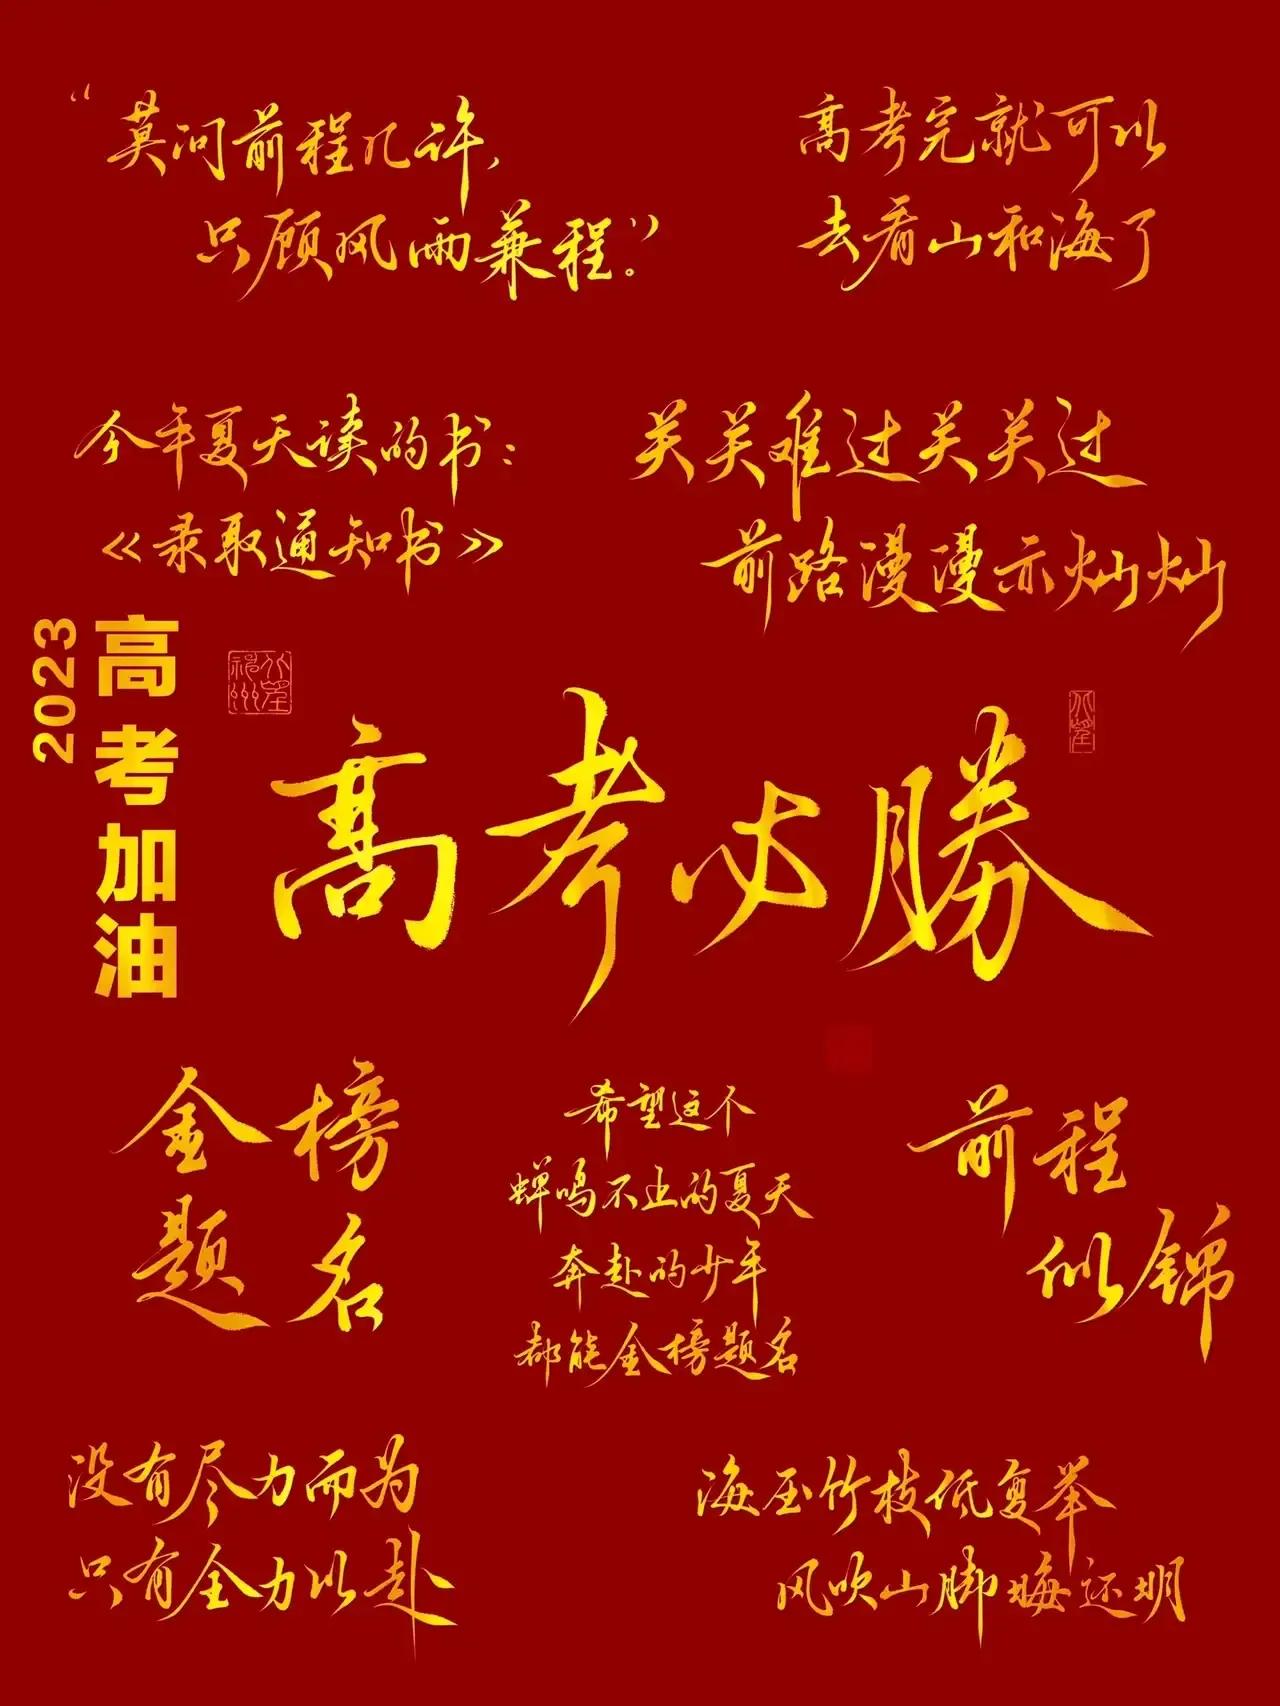 “莫问前程几许，
只顾风雨兼程。”
高考完就可以
去看山和海了
今年夏天读的书：
《录取通知书》
关关难过关关过
前路漫漫亦灿灿
2023
高考加油
高考必勝
金榜
题名
希望这个
蝉鸣不止的夏天
奔赴的少年
都能金榜题名
前程
似锦
没有尽力而为
只有全力以赴
海压竹枝低复举
风吹山脚晦还明